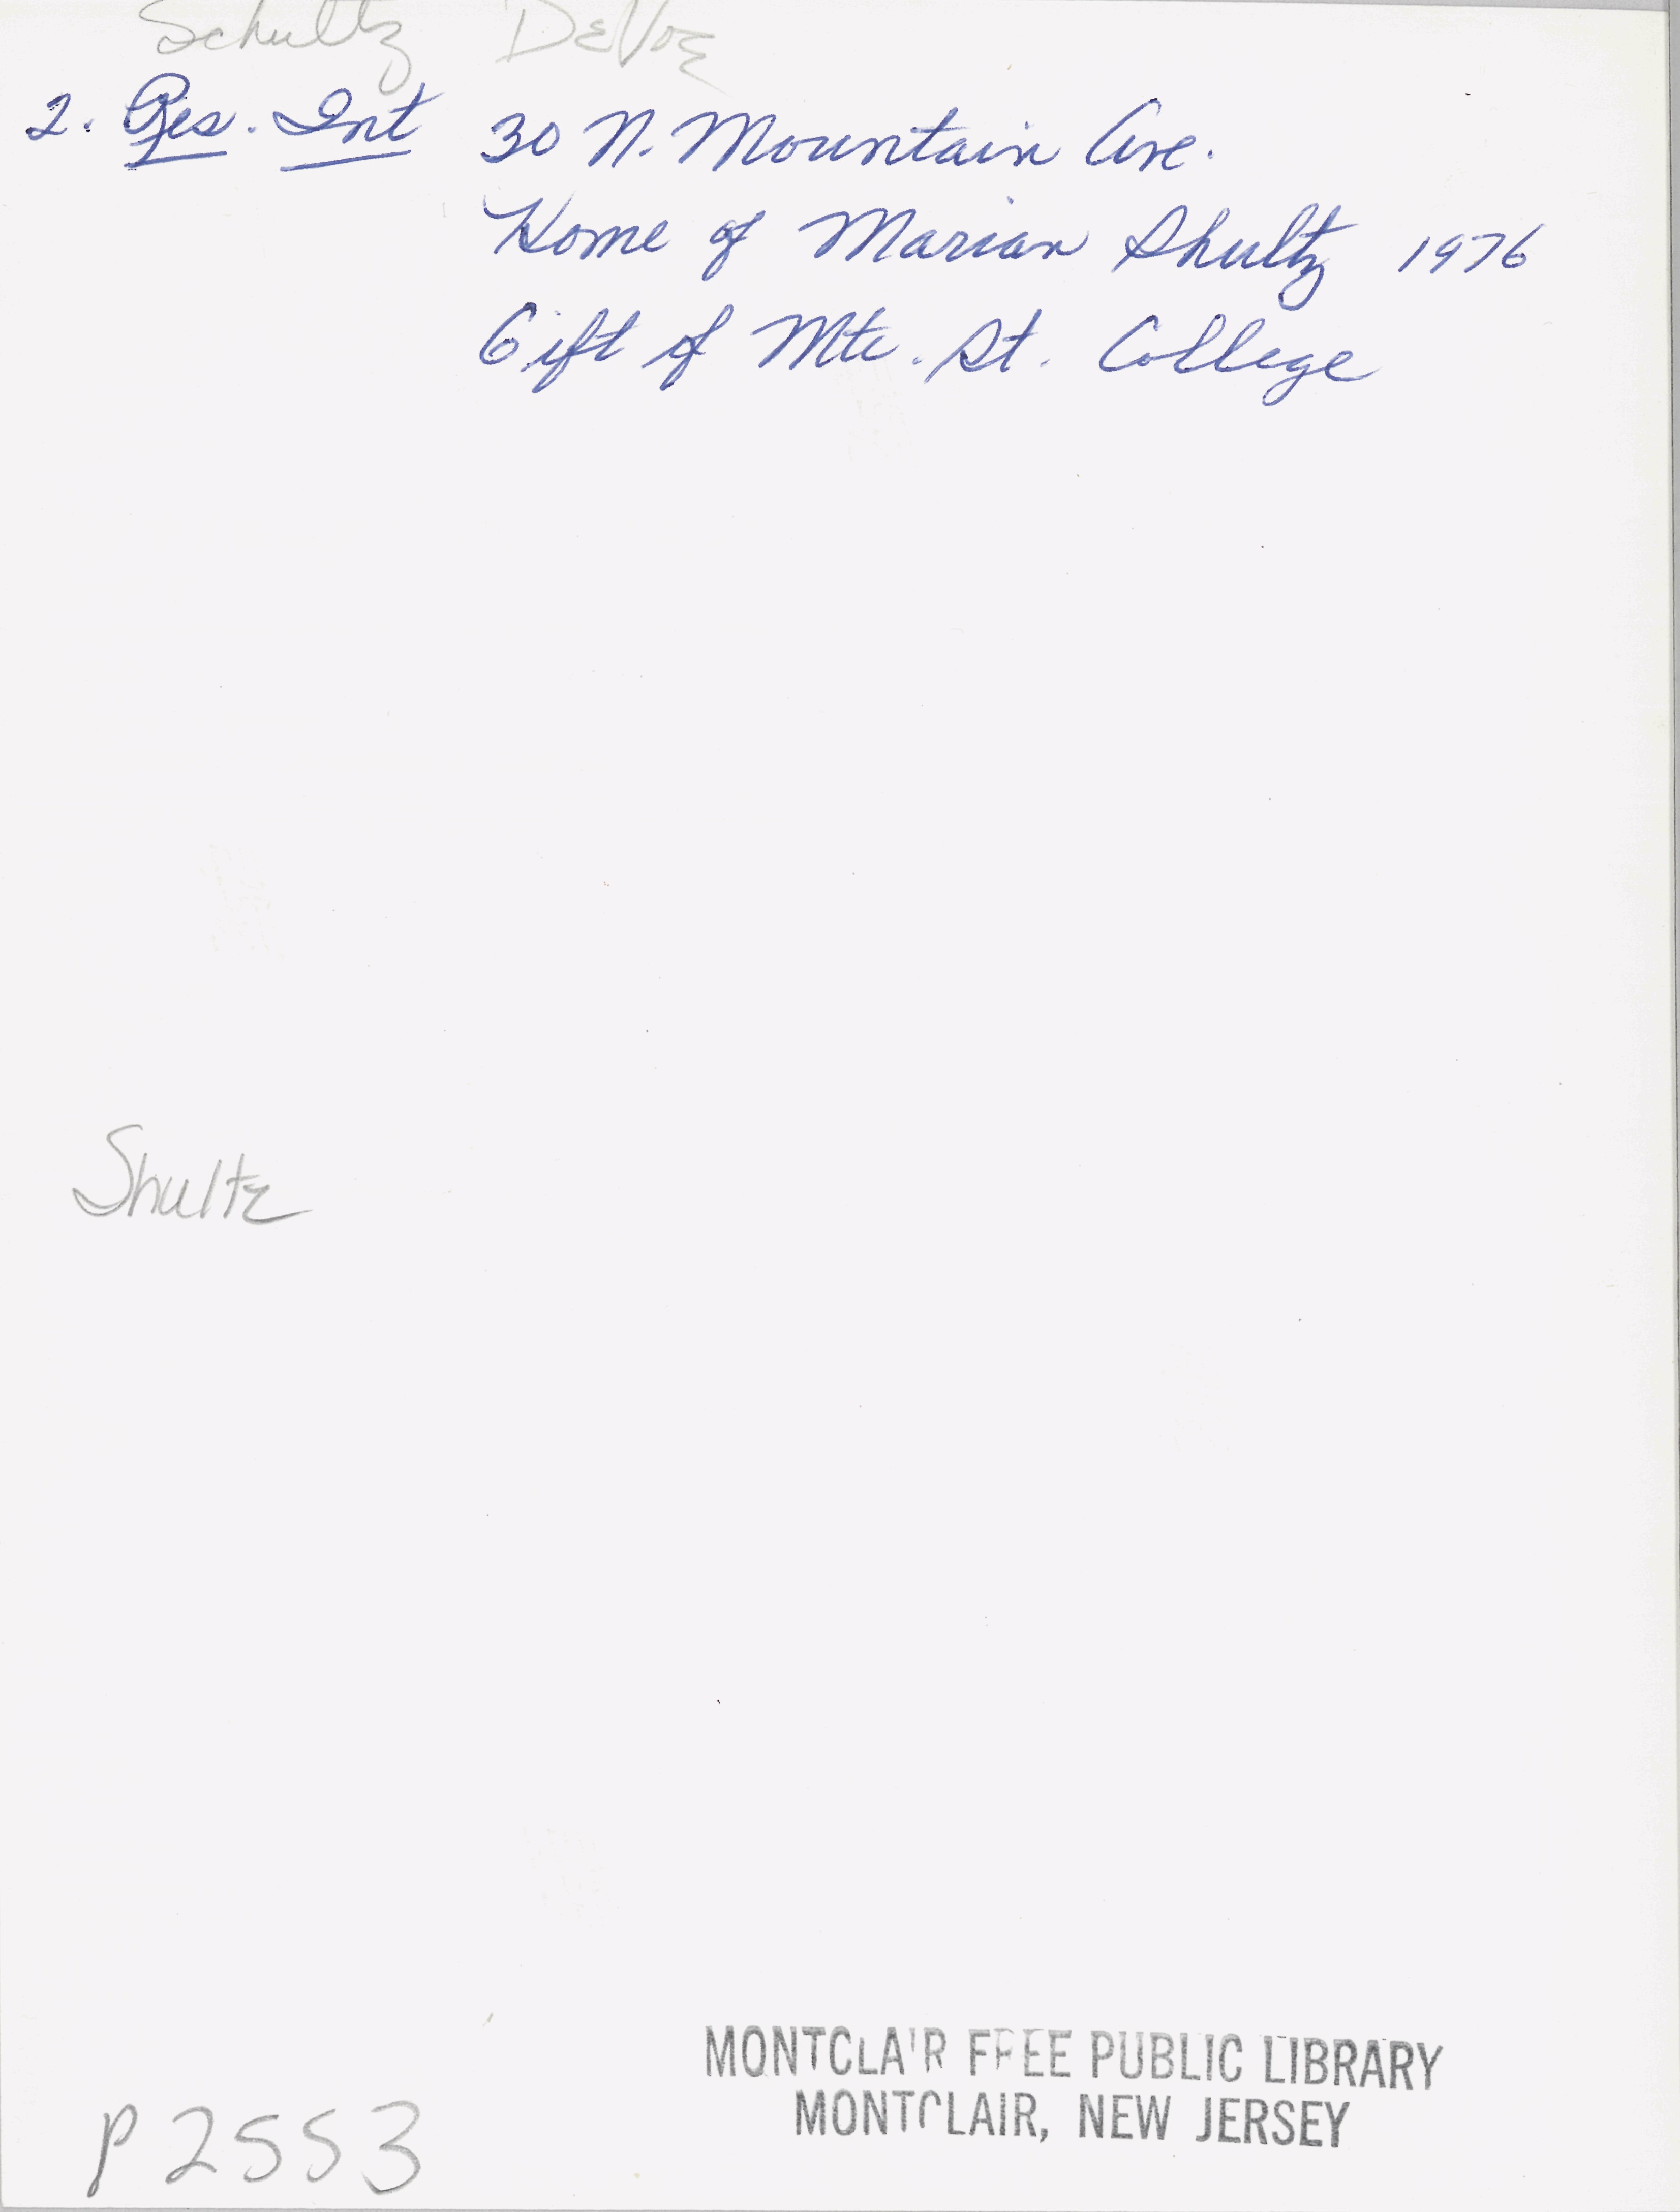 Schultz DeVoe
2. Res. Int 30 N. Mountain Ave.
Home of Marian Shultz 1976
Gift of Mtc. St. College
Shultz
MONTCLAIR FREE PUBLIC LIBRARY
MONTCLAIR, NEW JERSEY
P2553